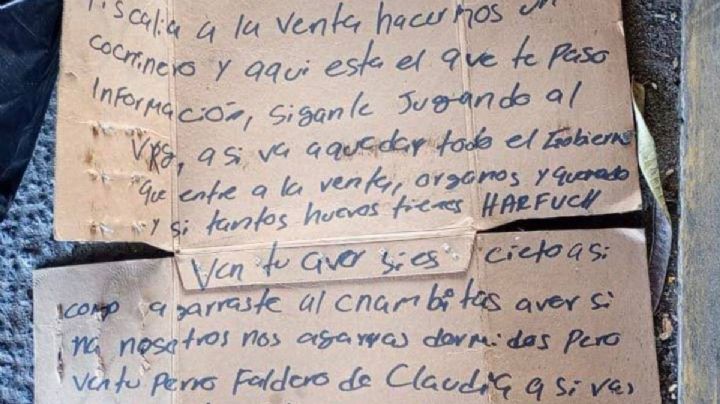 Fiscalia a la venta hacemos un
cocninero y aqui esta el que te paso
información, siganle Jugando al
VRg, a si va a quedar todo el Gobierno
que entre a la venta, organos y
y si tantos huevos tienes HARFUCH
Ven tu aver si es cieto asi
como agarraste al chambitas aver si
na nosotros nos agarras dormidos pero
ven tu perro Faldero de Claudia a si vas